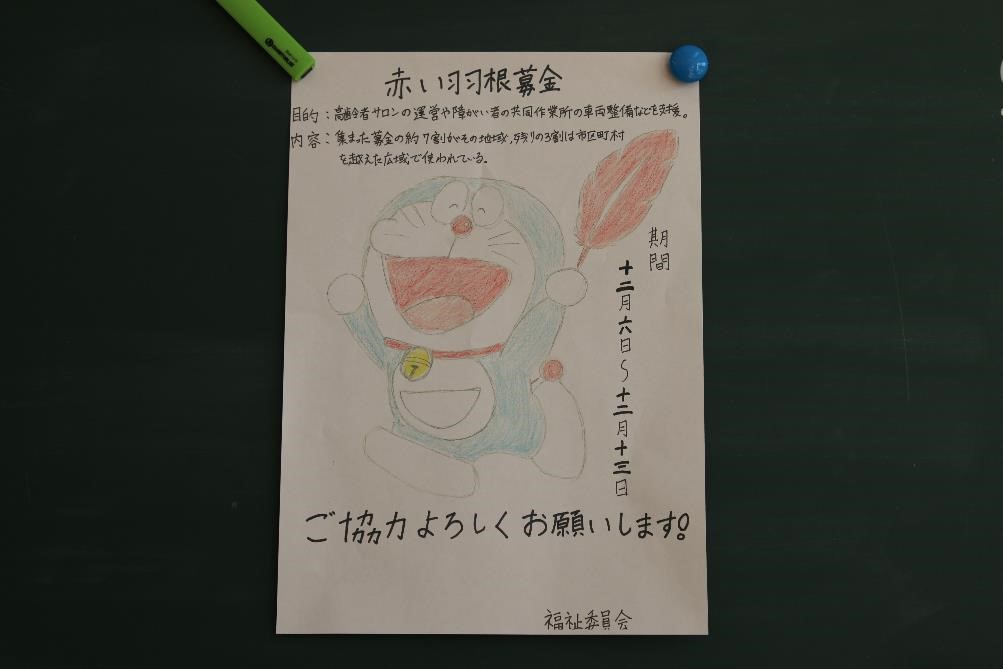 赤い羽根募金
目的：高齢者サロンの運営や障がい者の共同作業所の車両整備などを支援。
内容：集まった募金の約7割がその地域,残りの3割は市区町村
を越えた広域で使われている。
期間
十二月六日～十二月十三日
ご協力よろしくお願いします!
福祉委員会